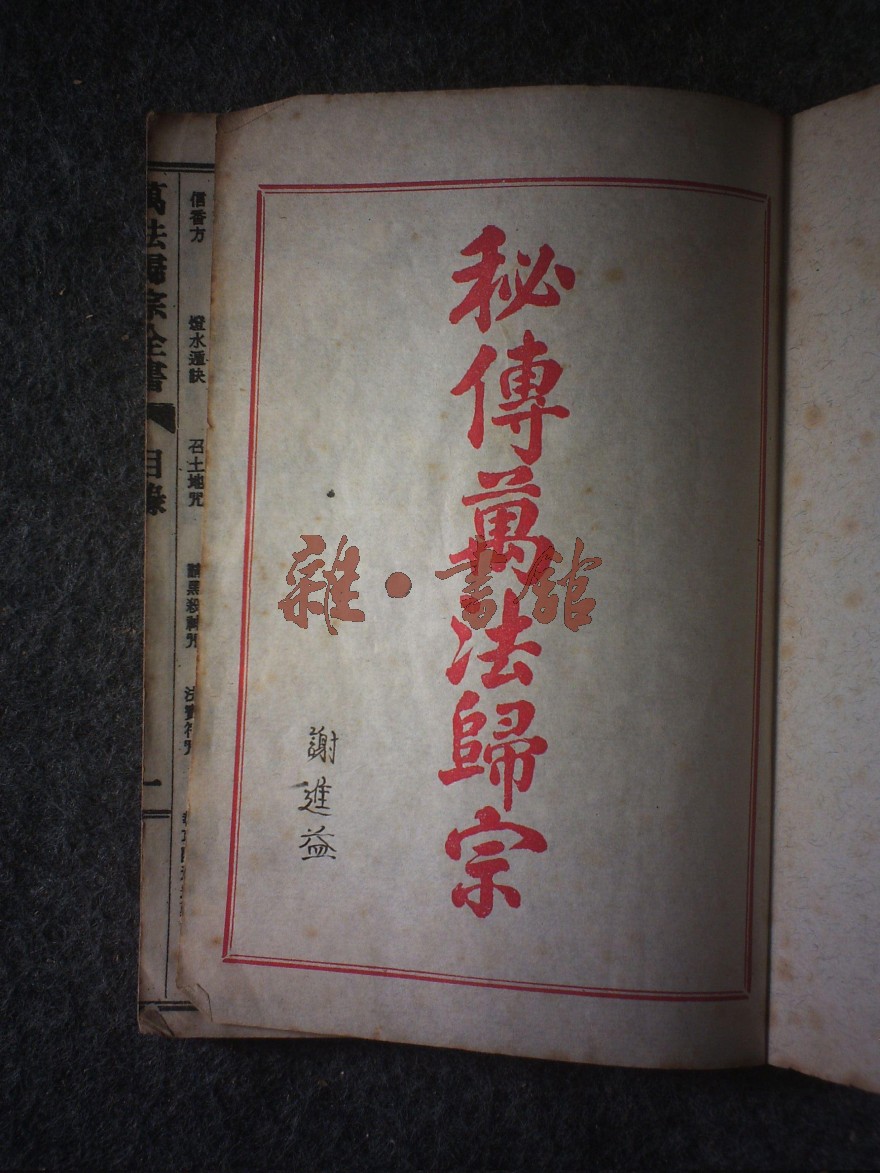 秘傳萬法歸宗
謝進益
雜·書館
信香方
燈水遁訣
召土地咒
萬法歸宗全書
目錄
一